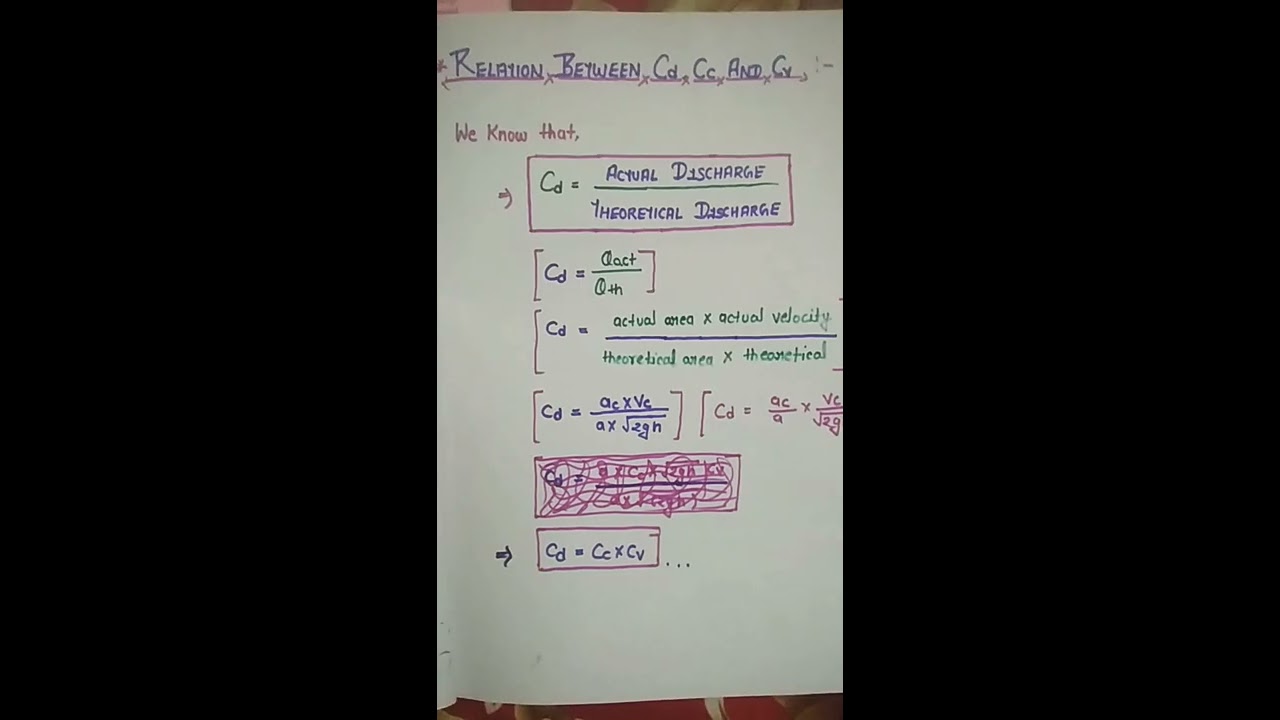 * RELATION BETWEEN Cd, Cc AND Cv :-
We Know that,
⇒ Cd = ACTUAL DISCHARGE / THEORETICAL DISCHARGE
[Cd = Qact / Qth]
[Cd = actual area x actual velocity / theoretical area x theoretical
[Cd = ac x Vc / a x √2gh] [Cd = ac / a x Vc / √2g
Cd =
⇒ Cd = Cc x Cv ...